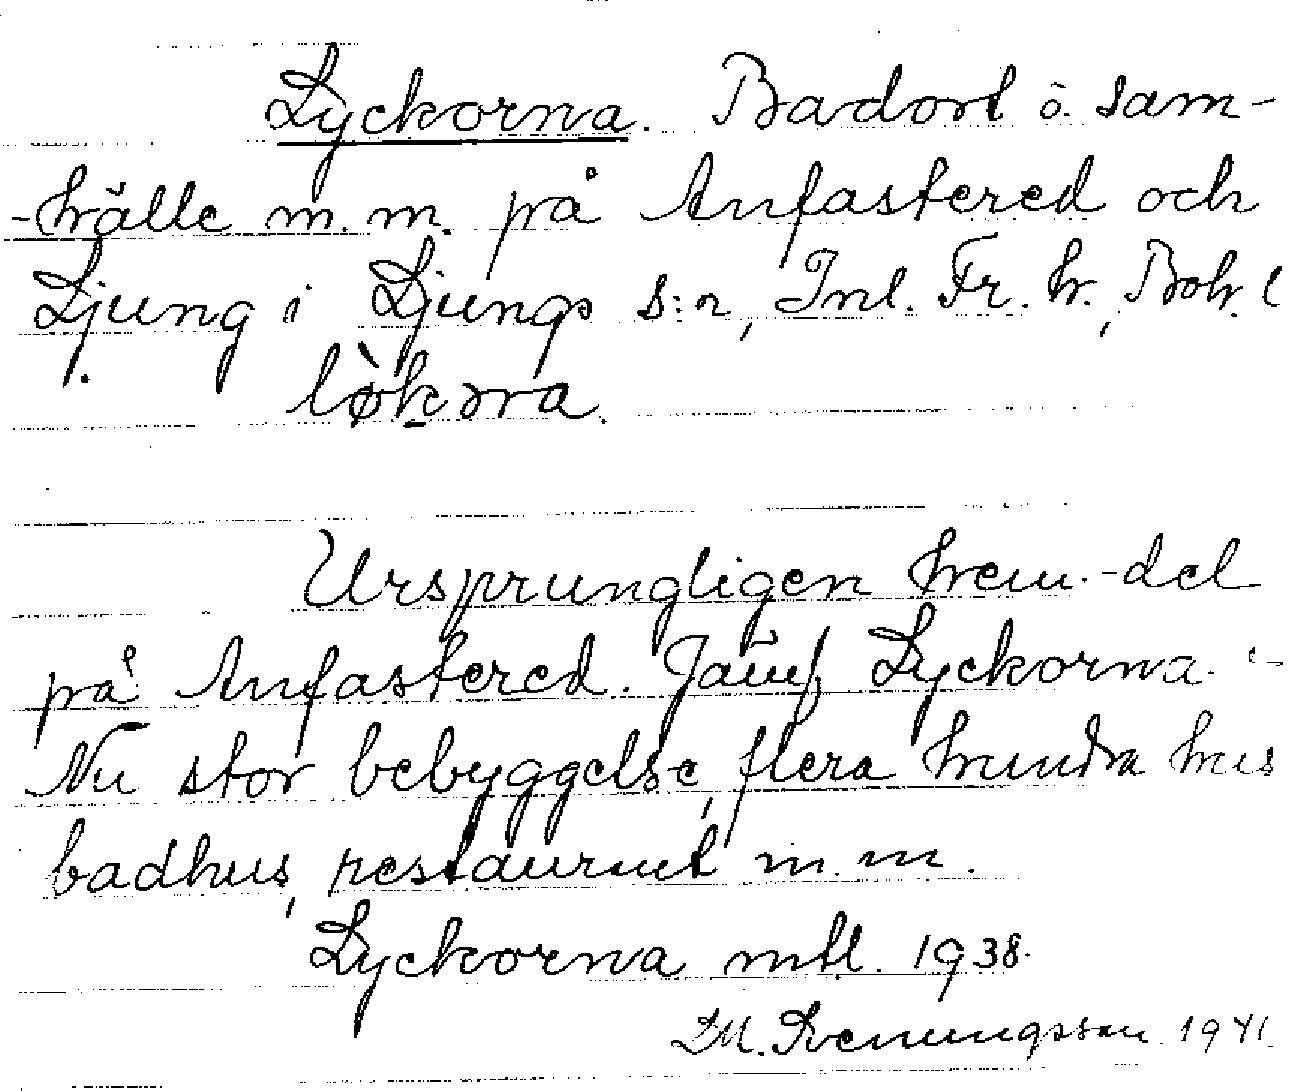 Lyckorna. Badort o. sam-
-hälle m.m. på Anfastered och
Ljung i Ljungs s:n, Inl. Fr. h., Boh. l
lø̀kɔrna.
Ursprungligen hem.-del
på Anfastered. Jämf. Lyckorna
Nu stor bebyggelse, flera hundra hus
badhus, restaurant m.m.
Lyckorna mtl. 1938.
D.M. Svenungsson 1941.